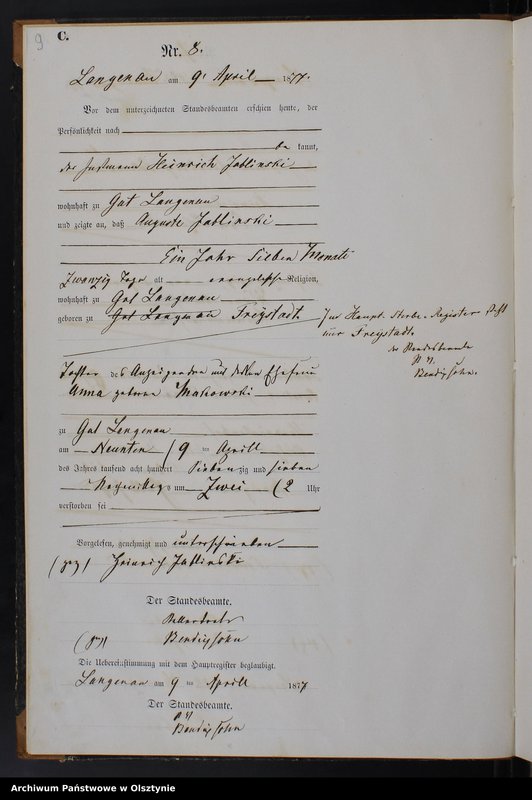 9
C.
Nr. 8.
Langenau am 9. April 1877.
Vor dem unterzeichneten Standesbeamten erschien heute, der
Persönlichkeit nach
be kannt,
der Instmann Heinrich Jablinski
wohnhaft zu Gut Langenau
und zeigte an, daß Auguste Jablinski
Ein Jahr sieben Monate
Zwanzig Tage alt evangelische Religion,
wohnhaft zu Gut Langenau
geboren zu Gut Langenau Freystadt
Im Haupt-Sterbe-Register steht
nur Freystadt.
der Standesbeamte
Bendigsohn.
Tochter des Anzeigenden und dessen Ehefrau
Anna geborne Makowski
zu Gut Langenau
am Neunten / 9 ten Aprill
des Jahres tausend acht hundert sieben zig und sieben
Nachmittags um Zwei (2 Uhr
verstorben sei
Vorgelesen, genehmigt und unterschrieben
(gez) Heinrich Jablinski
Der Standesbeamte.
Bendigsohn
(gez)
Die Uebereinstimmung mit dem Hauptregister beglaubigt.
Langenau am 9 ten Aprill 1877
Der Standesbeamte.
Bendigsohn
Archiwum Państwowe w Olsztynie